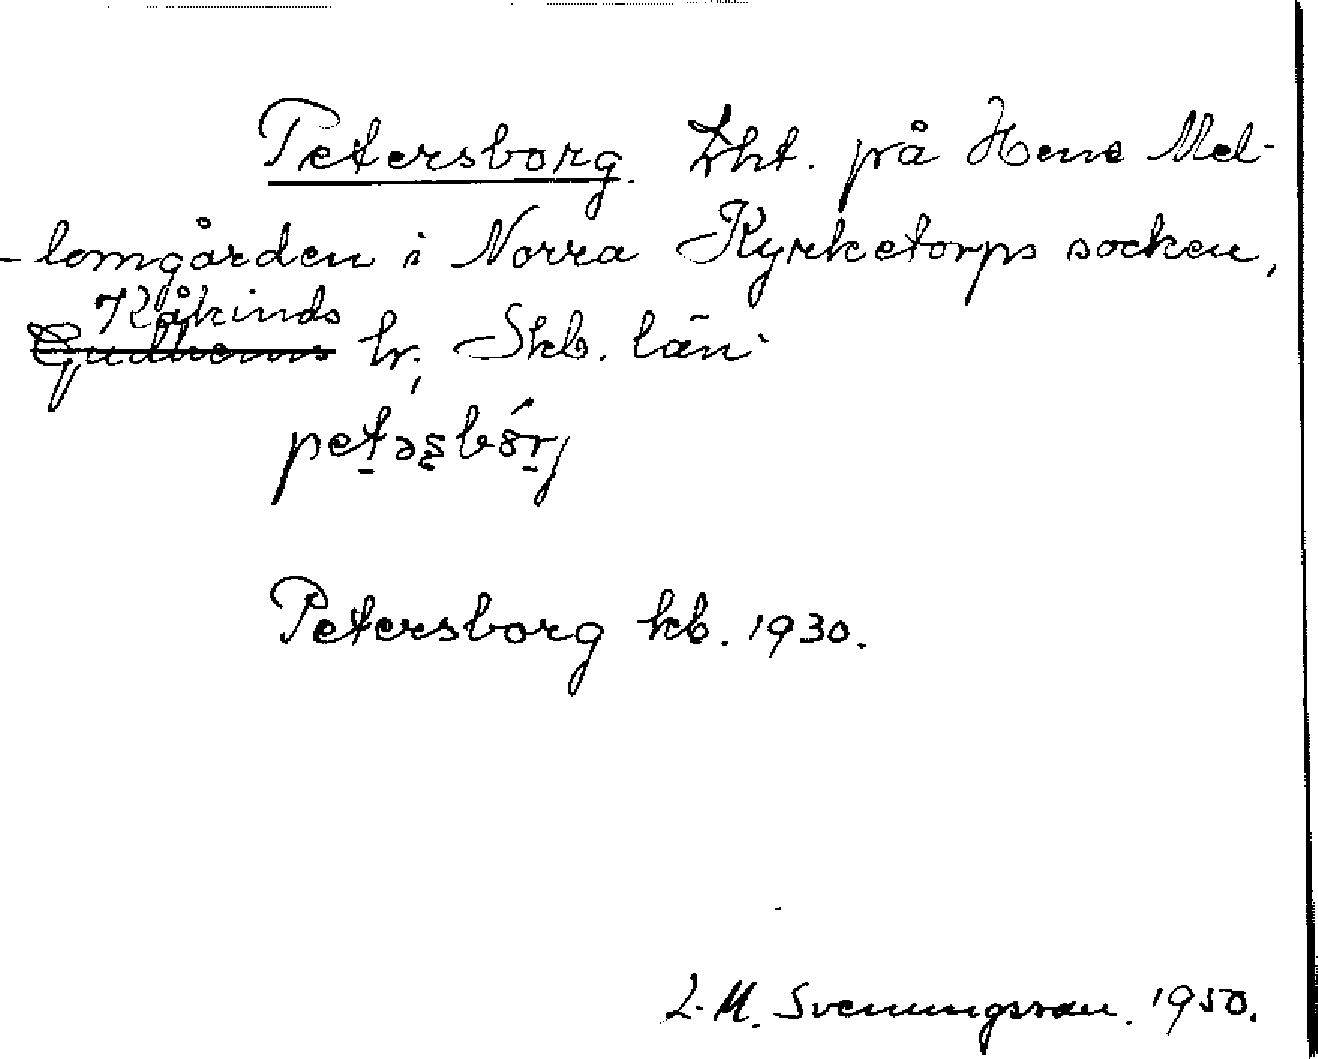 Petersborg. Lht. på Hene Mel-
-lomgården i Norra Kyrketorps socken,
Kåkinds
Gudhems hr, Skb. län.
petəsbórj
Petersborg kb. 1930.
L. M. Svenungsson. 1950.